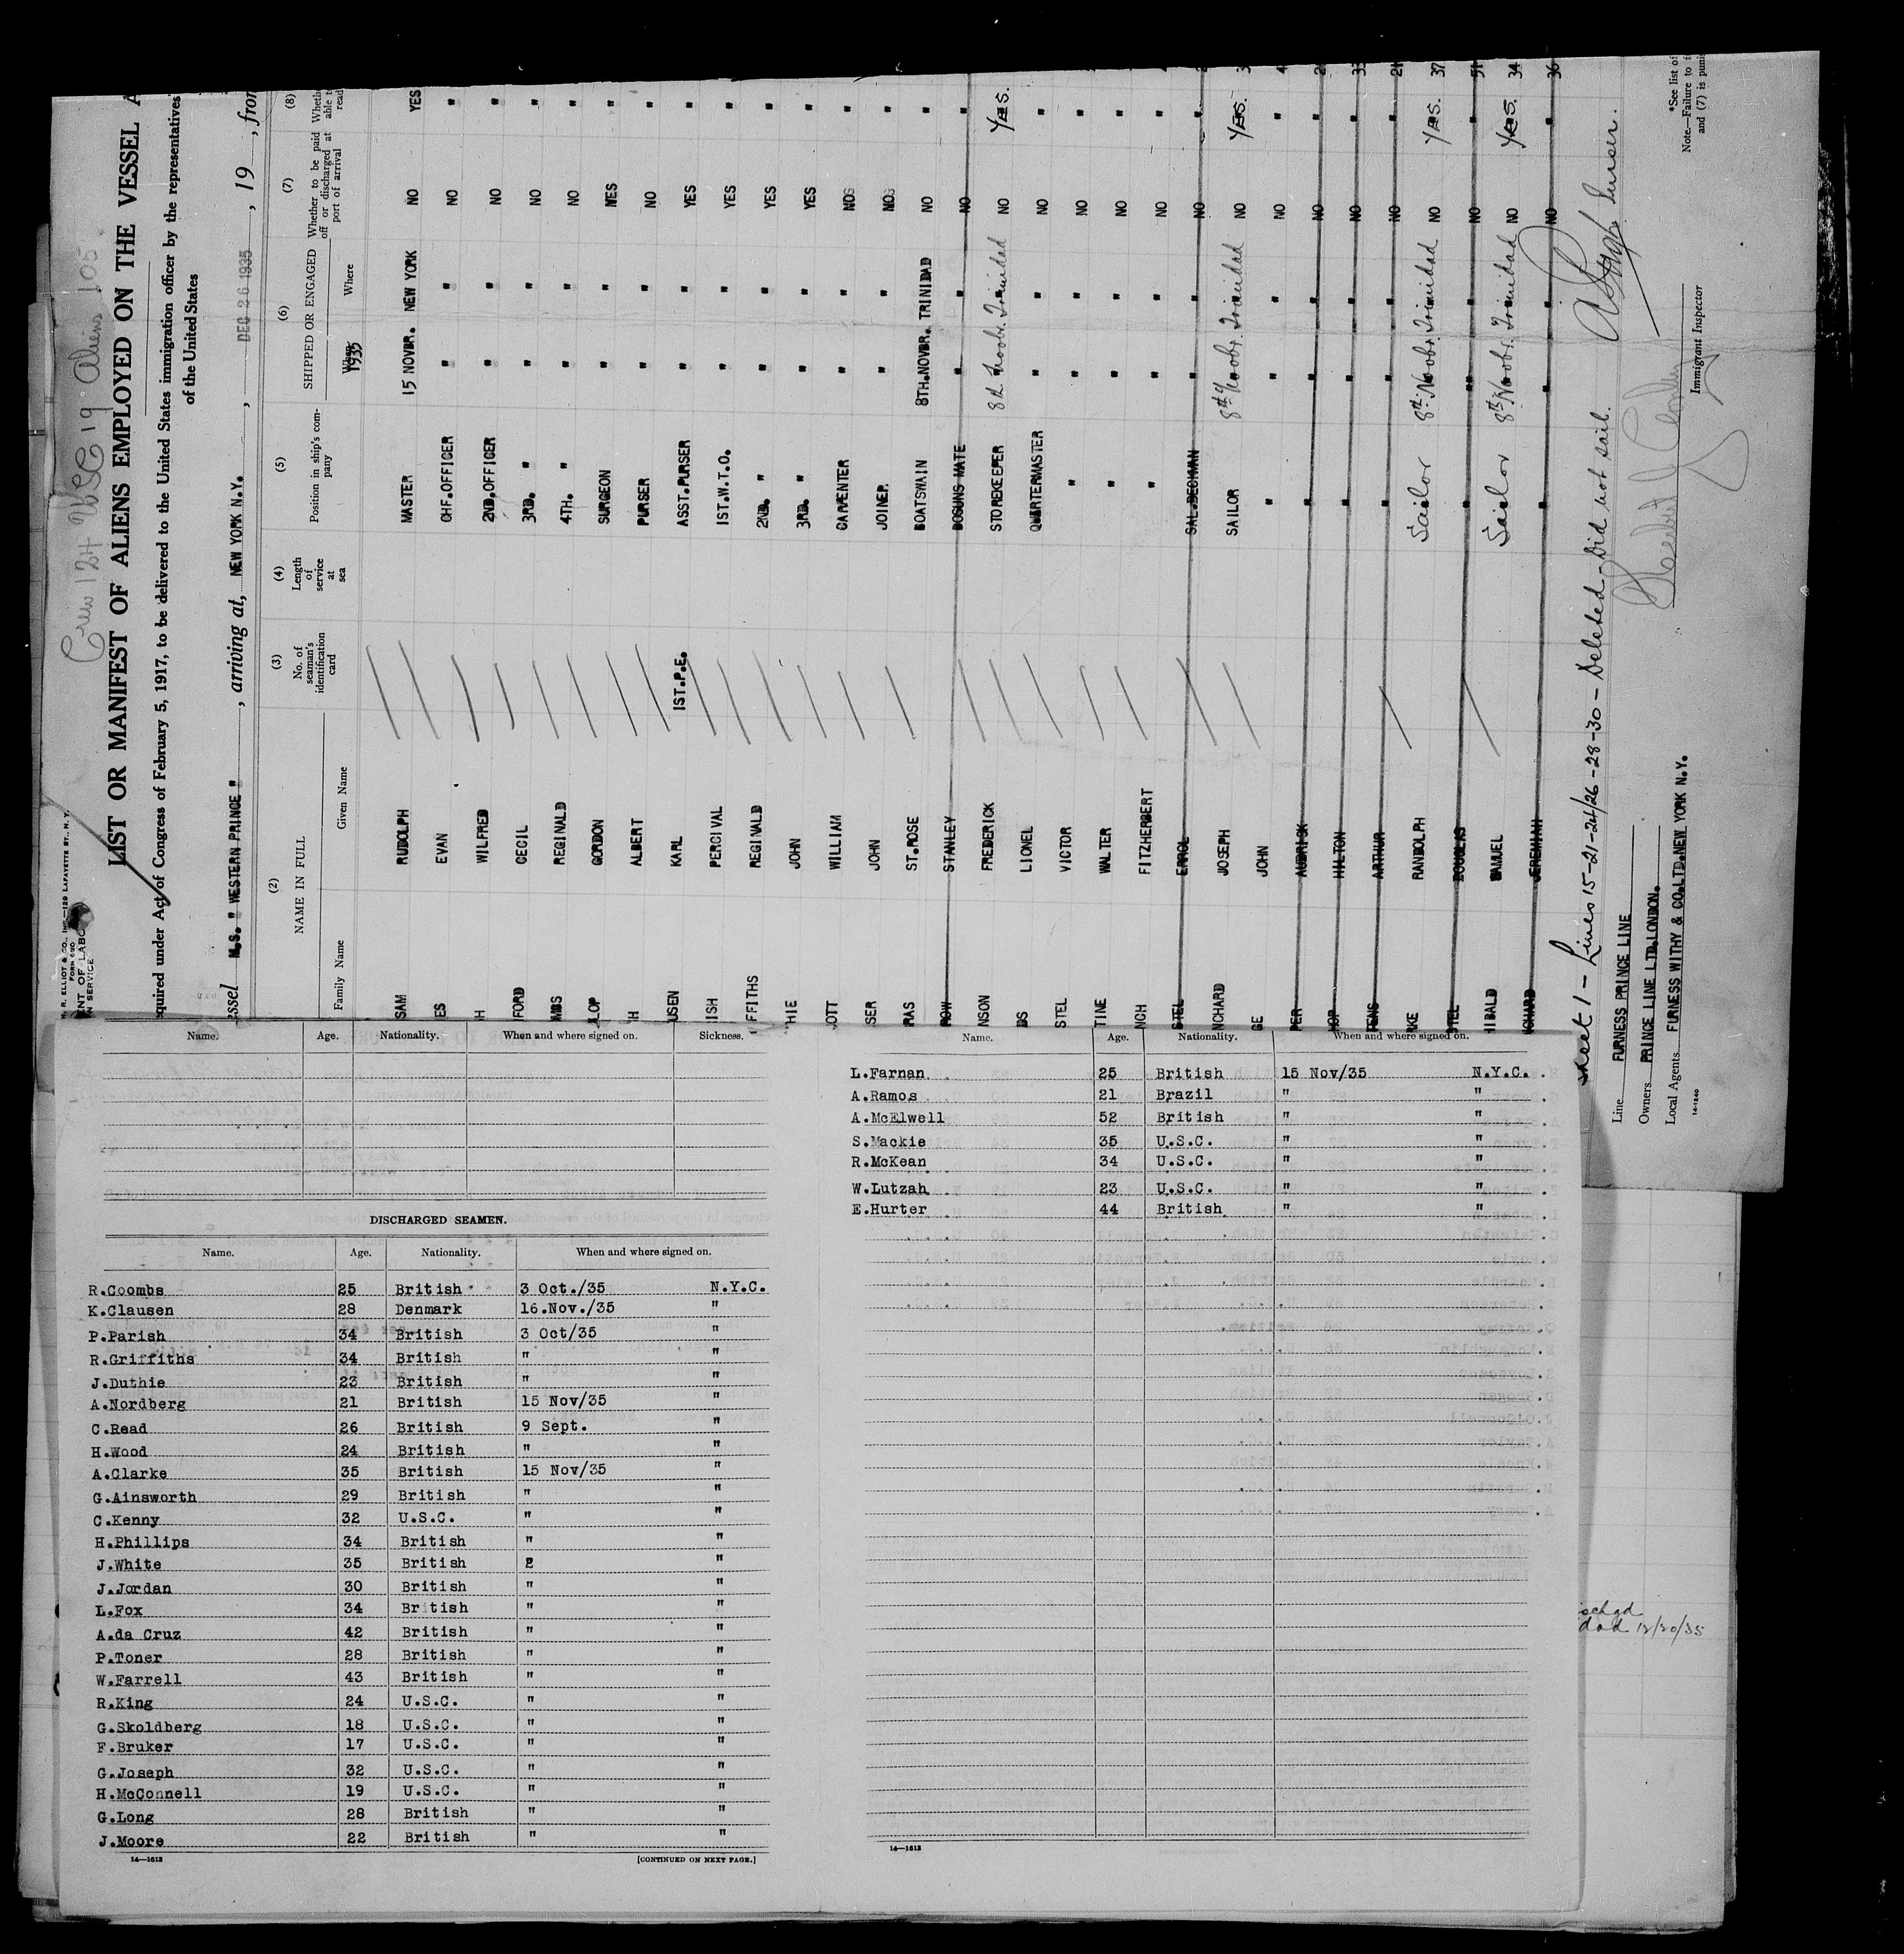 Crew 124 USC 19 Aliens 105
R. ELLIOT & CO., INC.—129 LAFAYETTE ST., N. Y.
FORM 680
ENT OF LABO
N SERVICE
LIST OR MANIFEST OF ALIENS EMPLOYED ON THE VESSEL A
quired under Act of Congress of February 5, 1917, to be delivered to the United States immigration officer by the representatives
of the United States
ssel M.S. " WESTERN PRINCE " , arriving at, NEW YORK N.Y. , DEC 26 1935 , 19 , from
(2) (3) (4) (5) (6) (7) (8)
NAME IN FULL No. of seaman's identification card Length of service at sea Position in ship's company SHIPPED OR ENGAGED Whether to be paid off or discharged at port of arrival Wheth able t read
Family Name Given Name When 1935 Where
SAM RUDOLPH MASTER 15 NOVBR. NEW YORK NO YES
ES EVAN CHF.OFFICER " " NO "
H WILFRED 2ND.OFFICER " " NO "
FORD CECIL 3RD. " " " NO "
MBS REGINALD 4TH. " " " NO "
LOP GORDON SURGEON " " YES "
H ALBERT PURSER " " NO "
USEN KARL 1ST.P.E. ASST.PURSER " " YES "
ISH PERCIVAL 1ST.W.T.O. " " YES "
FFITHS REGINALD 2ND. " " " YES "
HIE JOHN 3RD. " " " YES "
OTT WILLIAM CARPENTER " " NO "
SER JOHN JOINER " " NO "
RAS ST.ROSE BOATSWAIN 8TH.NOVBR. TRINIDAD NO "
ROW STANLEY BOSUNS MATE " " NO "
NSON FREDERICK STOREKEEPER 8th Novbr. Trinidad NO YES.
DS LIONEL QUARTERMASTER " " NO "
STEL VICTOR " " " NO "
TINE WALTER " " " NO "
NCH FITZHERBERT " " " NO "
STEL ERROL SAL.DECMAN " " NO "
NCHARD JOSEPH SAILOR 8th Novbr. Trinidad NO YES.
GE JOHN " " " NO "
PER AUDRICK " " " NO "
HOP HILTON " " " NO "
FENS ARTHUR " " " NO " 21
RKE RANDOLPH Sailor 8th Novbr. Trinidad NO YES. 37
STEL DOUGLAS " " " NO " 51
HIBALD SAMUEL Sailor 8th Novbr. Trinidad NO YES. 34
NCHARD JEREMIAH " " " NO " 36
Sheet 1 - Lines 15-21-24/26-28-30 - Deleted - Did not sail. Purser.
Line FURNESS PRINCE LINE
Owners PRINCE LINE LTD.LONDON.
Local Agents FURNESS WITHY & CO.LTD.NEW YORK N.Y.
Immigrant Inspector
*See list of
Note.—Failure to f
and (7) is puni
14-1240
Name. Age. Nationality. When and where signed on. Sickness.
DISCHARGED SEAMEN.
Name. Age. Nationality. When and where signed on.
R.Coombs 25 British 3 Oct./35 N.Y.C.
K.Clausen 28 Denmark 16.Nov./35 "
P.Parish 34 British 3 Oct/35 "
R.Griffiths 34 British " "
J.Duthie 23 British " "
A.Nordberg 21 British 15 Nov/35 "
C.Read 26 British 9 Sept. "
H.Wood 24 British " "
A.Clarke 35 British 15 Nov/35 "
G.Ainsworth 29 British " "
C.Kenny 32 U.S.C. " "
H.Phillips 34 British " "
J.White 35 British "
J.Jordan 30 British " "
L.Fox 34 British " "
A.da Cruz 42 British " "
P.Toner 28 British " "
W.Farrell 43 British " "
R.King 24 U.S.C. " "
G.Skoldberg 18 U.S.C. " "
F.Bruker 17 U.S.C. " "
G.Joseph 32 U.S.C. " "
H.McConnell 19 U.S.C. " "
G.Long 28 British " "
J.Moore 22 British " "
14—1613 [CONTINUED ON NEXT PAGE.]
Name. Age. Nationality. When and where signed on.
L.Farnan 25 British 15 Nov/35 N.Y.C.
A.Ramos 21 Brazil " "
A.McElwell 52 British " "
S.Mackie 35 U.S.C. " "
R.McKean 34 U.S.C. " "
W.Lutzah 23 U.S.C. " "
E.Hurter 44 British " "
14—1613
schgd
dad 12/20/35